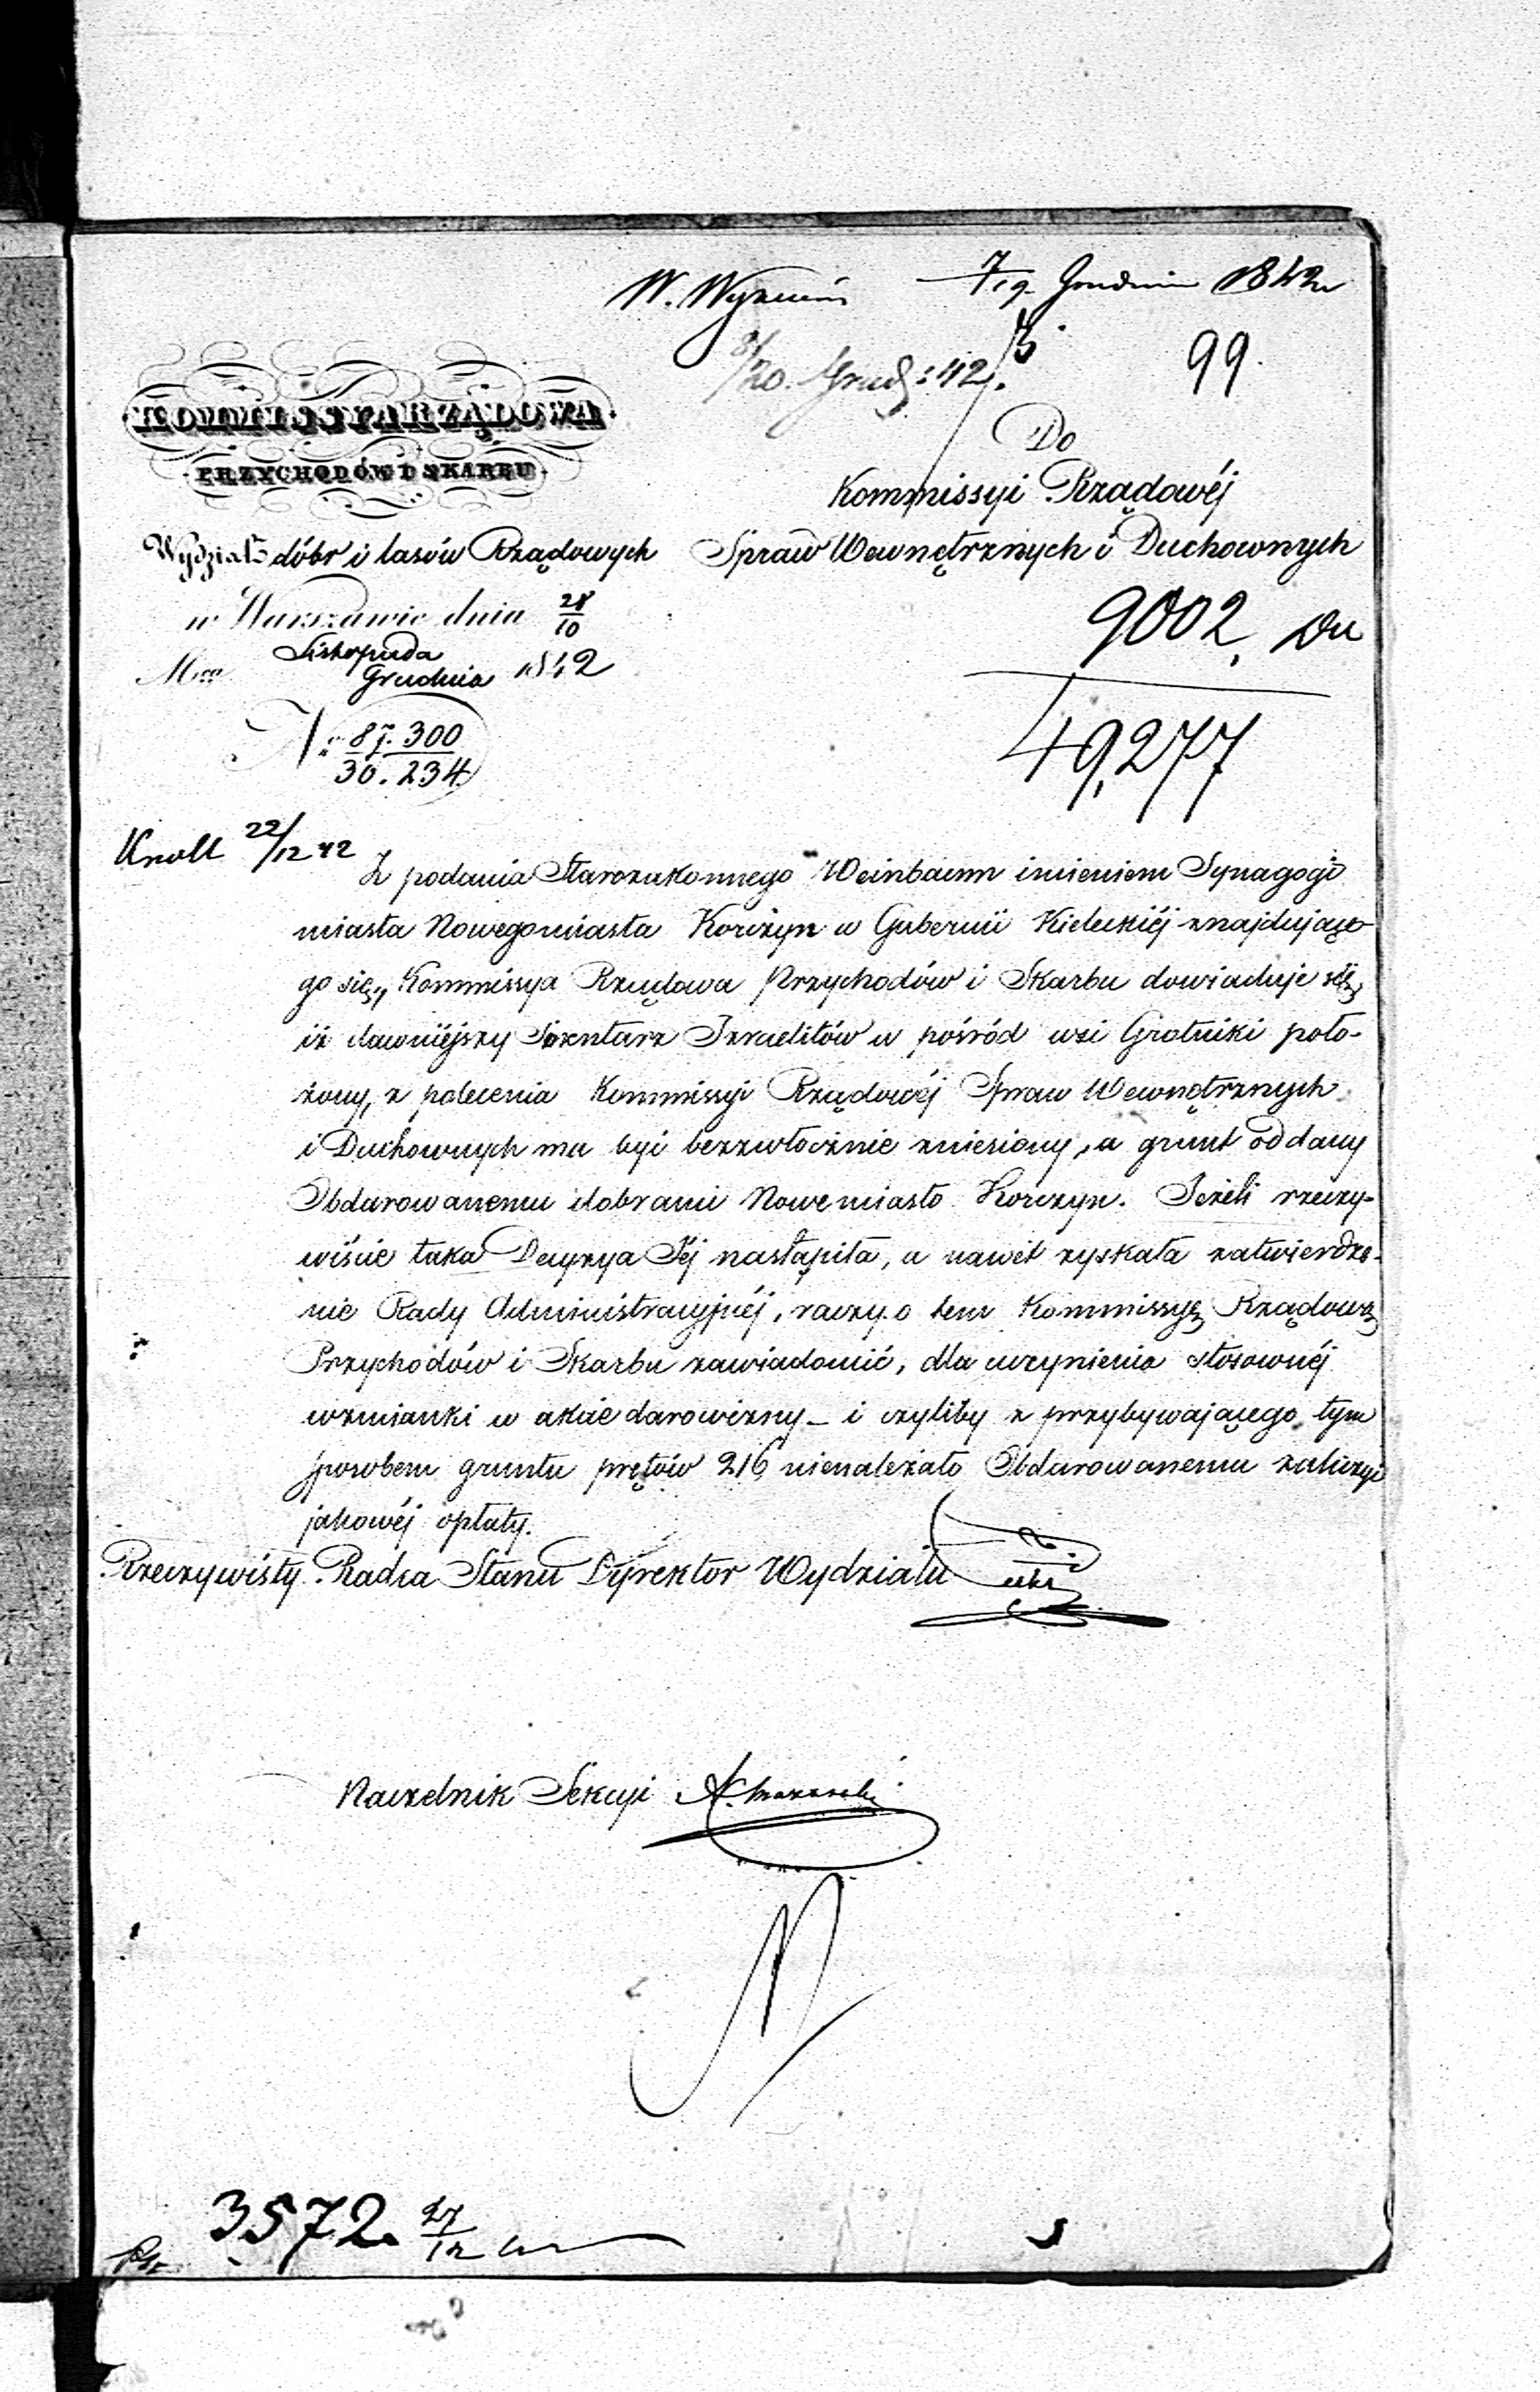 7/19. Grudnia 1842
8/20. Grud: 42.
99.
KOMMISSYA RZĄDOWA
PRZYCHODÓW I SKARBU
Do
Kommissyi Rządowéj
Spraw Wewnętrznych i Duchownych
Wydział dóbr i lasów Rządowych
w Warszawie dnia 28/10
Mca Listopada
Grudnia 1842
N. 87.300
30.234
9002.
49,277
Knoll 22/12 42
Z podania Starozakonnego Weinbaum imieniem Synagogi
miasta Nowegomiasta Korczyn w Gubernii Kieleckiéj znajdujące-
go się, Kommissya Rządowa Przychodów i Skarbu dowiaduje się,
iż dawniéjszy Smentarz Izraelitów w pośród wsi Grotniki poło-
żony, z polecenia Kommissyi Rządowéj Spraw Wewnętrznych
i Duchownych ma być bezzwłocznie zniesiony, a grunt oddany
Obdarowanemu dobrami Nowemiasto Korczyn. Jeżeli rzeczy-
wiście taka Decyzya Jéj nastąpiła, a nawet zyskała zatwierdze-
nie Rady Administracyjnéj, raczy o tem Kommissyę Rządową
Przychodów i Skarbu zawiadomić, dla uczynienia stosownéj
wzmianki w akcie darowizny_ i czyliby z przybywającego tym
sposobem gruntu prętów 216 nienależało Obdarowanemu zaliczyć
jakowéj opłaty.
Rzeczywisty Radca Stanu Dyrektor Wydziału
Naczelnik Sekcyi
3572. 27/12